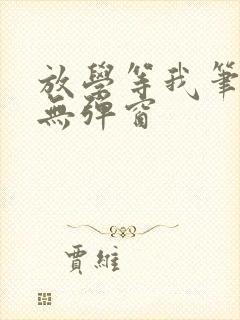 放學等我筆
無彈窗
賈維